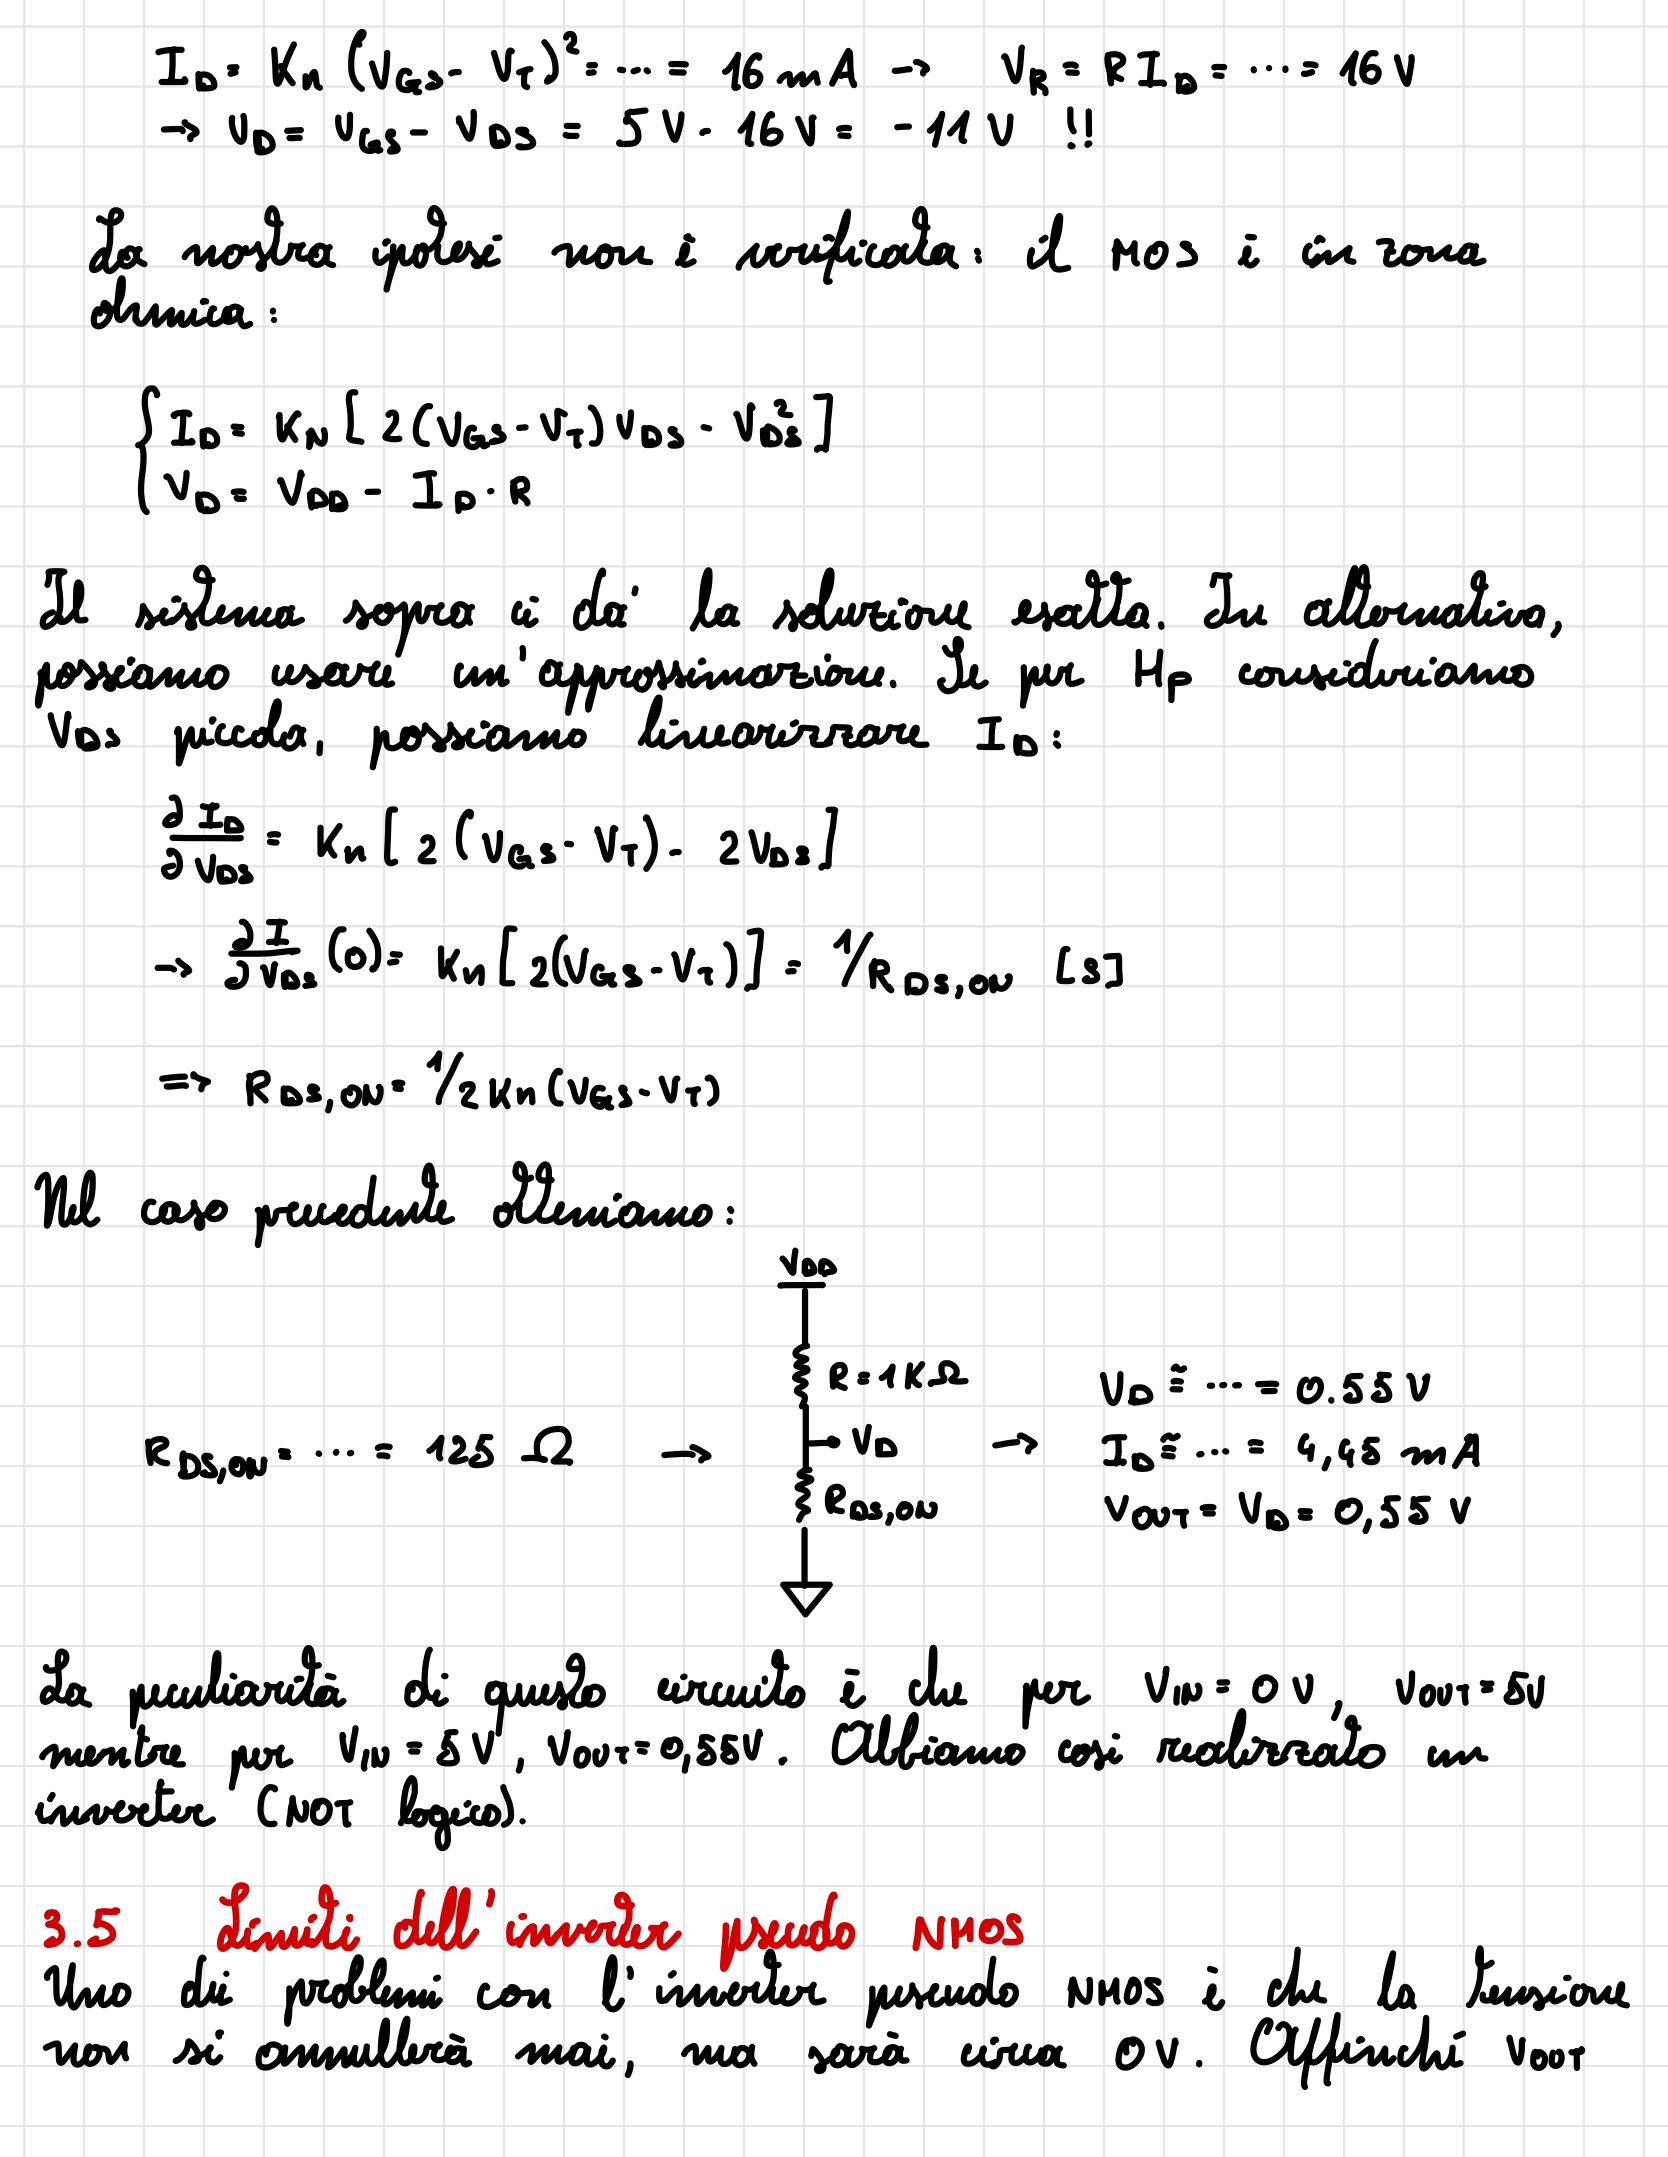 I_D = K_n (V_GS - V_T)² = ... = 16 mA → V_R = R I_D = ... = 16 V
→ V_D = V_GS - V_DS = 5 V - 16 V = -11 V !!
La nostra ipotesi non è verificata: il MOS è in zona
ohmica:
{ I_D = K_N [ 2(V_GS - V_T) V_DS - V_DS² ]
V_D = V_DD - I_D · R
Il sistema sopra ci da' la soluzione esatta. In alternativa,
possiamo usare un'approssimazione. Se per Hp consideriamo
V_DS piccola, possiamo linearizzare I_D:
∂I_D/∂V_DS = K_n [ 2 (V_GS - V_T) - 2V_DS ]
→ ∂I/∂V_DS (0) = K_n [ 2(V_GS - V_T) ] = 1/R_DS,ON [S]
=> R_DS,ON = 1/2 K_n (V_GS - V_T)
Nel caso precedente otteniamo:
V_DD
R = 1KΩ
R_DS,ON = ... = 125 Ω → V_D →
R_DS,ON
V_D ≅ ... = 0.55 V
I_D ≅ ... = 4,45 mA
V_OUT = V_D = 0,55 V
La peculiarità di questo circuito è che per V_IN = 0 V, V_OUT = 5V
mentre per V_IN = 5 V, V_OUT = 0,55V. Abbiamo così realizzato un
inverter (NOT logico).
3.5 Limiti dell'inverter pseudo NMOS
Uno dei problemi con l'inverter pseudo NMOS è che la tensione
non si annullerà mai, ma sarà circa 0 V. Affinché V_OUT